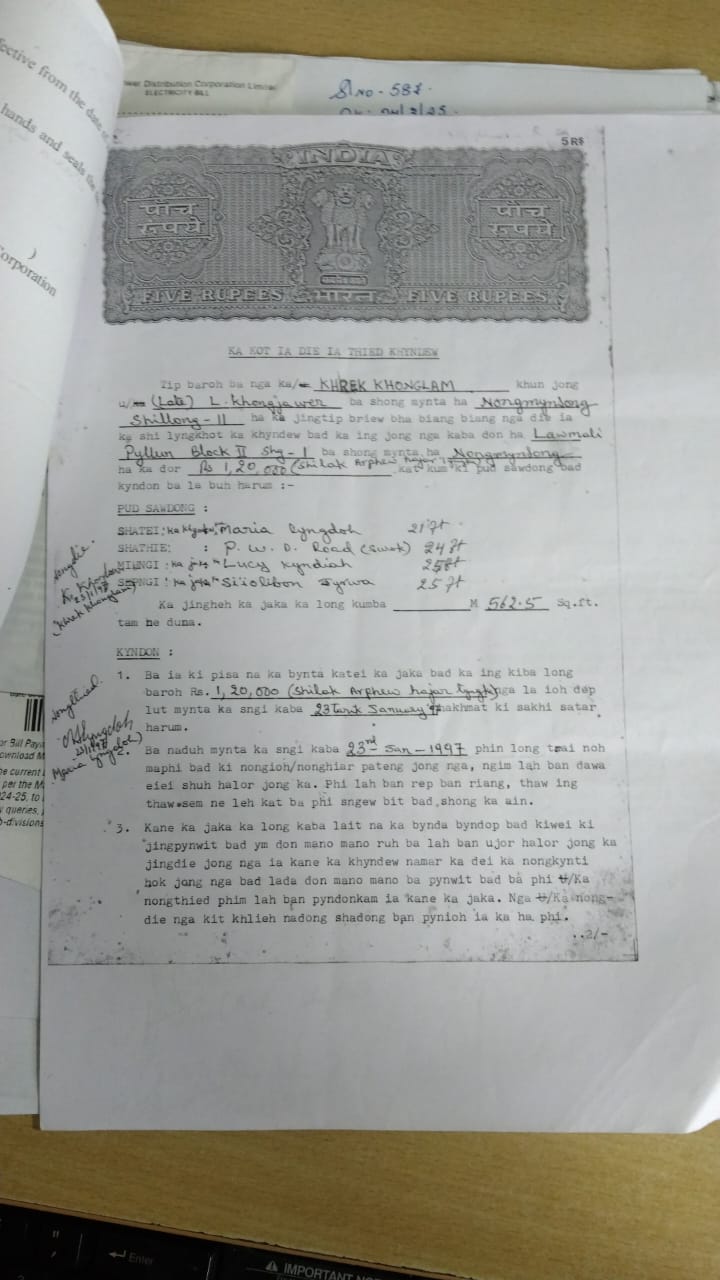 ective from the date
hands and seals the
)
orporation
wer Distribution Corporation Limited
ELECTRICITY BILL
Sl No - 587.
5 RS
INDIA
पाँच रुपये
पाँच रुपये
FIVE RUPEES भारत FIVE RUPEES
KA KOT IA DIE IA THIED KHYNDEW
Tip baroh ba nga ka/ KHREK KHONGLAM khun jong
u/ (Late) L. Khongjawer ba shong mynta ha Nongmynsong
Shillong - 11 ha ka jingtip briew bha biang biang nga die ia
ka shi lyngkhot ka khyndew bad ka ing jong nga kaba don ha Lawmali
Pyllun Block II Shg - 1 ba shong mynta ha Nongmynsong
ha ka dor Rs 1,20,000 (Shilak Arphew hajar kat kum ki pud sawdong bad
kyndon ba la buh harum :-
PUD SAWDONG :
SHATEI : Maria Lyngdoh 21 ft
SHATHIE: : P. W. D. Road (Surok) 24 ft
MIHNGI : ka jaka Lucy Kyndiah 25 ft
SEPNGI : ka jaka 25 ft
Ka jingheh ka jaka ka long kumba M 562.5 Sq.ft.
tam ne duna.
Nongdie.
K. Khonglam
23/1/97
(Khrek Khonglam)
KYNDON :
1. Ba ia ki pisa na ka bynta katei ka jaka bad ka ing kiba long
baroh Rs. 1,20,000 (Shilak Arphew hajar nga la ioh dep
lut mynta ka sngi kaba 23 tarik January '97 hakhmat ki sakhi satar
harum.
Nongthied.
MLyngdoh
23/1/97
(Maria Lyngdoh)
2. Ba naduh mynta ka sngi kaba 23rd - Jan - 1997 phin long trai noh
maphi bad ki nongioh/nonghiar pateng jong nga, ngim lah ban dawa
eiei shuh halor jong ka. Phi lah ban rep ban riang, thaw ing
thaw sem ne leh kat ba phi sngew bit bad shong ka ain.
3. Kane ka jaka ka long kaba lait na ka bynda byndop bad kiwei ki
jingpynwit bad ym don mano mano ruh ba lah ban ujor halor jong ka
jingdie jong nga ia kane ka khyndew namar ka dei ka nongkynti
hok jong nga bad lada don mano mano ba pynwit bad ba phi U/Ka
nongthied phim lah ban pyndonkam ia kane ka jaka. Nga U/Ka nong-
die nga kit khlieh nadong shadong ban pynioh ia ka ha phi.
..2/-
or Bill Pay
ownload M
he current
per the M
24-25, to
queries,
b-divisions
Enter
IMPORTANT